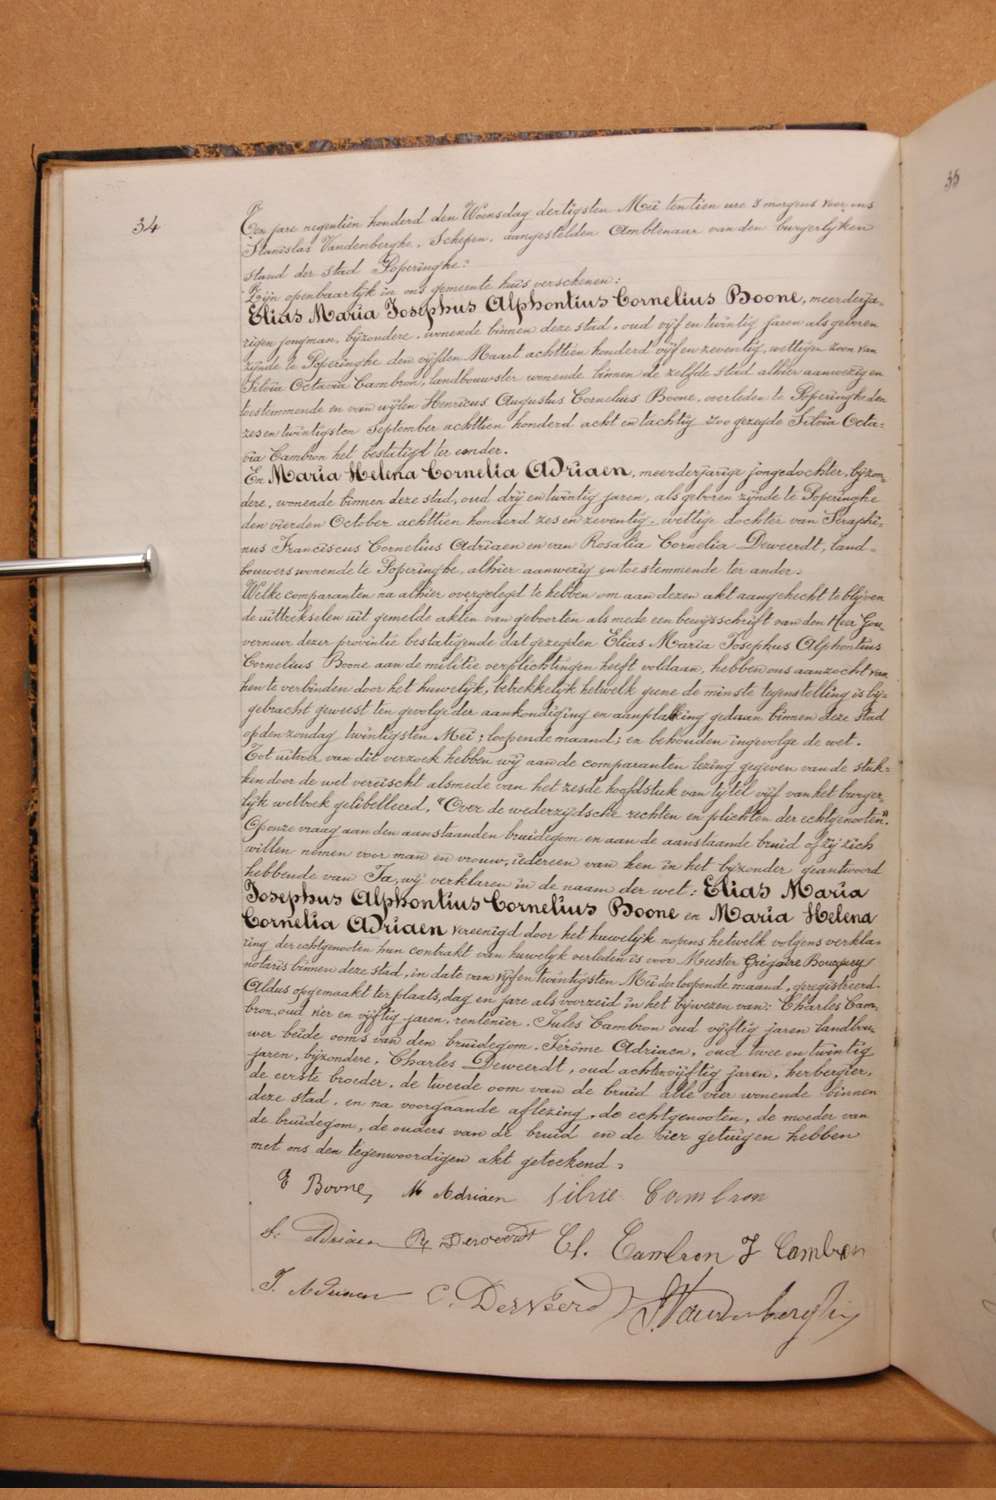 34
35
Ten jare negentien honderd den Woensdag dertigsten Meï ten tien ure 's morgens voor ons
Stanislas Vandenberghe, Schepen, aangestelden Ambtenaar van den burgerlijken
stand der stad Poperinghe:
Zijn openbaarlijk in ons gemeente huis verschenen:
Elias Maria Josephus Alphontius Cornelius Boone, meerderja-
rigen jongman, bijzondere, wonende binnen deze stad, oud vijf en twintig jaren als geboren
zijnde te Poperinghe den vijfden Maart achttien honderd vijf en zeventig, wettigen zoon van
Silvia Octavia Cambron, landbouwster wonende binnen de zelfde stad alhier aanwezig en
toestemmende en van wijlen Henricus Augustus Cornelius Boone, overleden te Poperinghe den
zes en twintigsten September achttien honderd acht en tachtig zoo gezegde Silvia Octa-
via Cambron het bestatigd ter eender.
En Maria Helena Cornelia Adriaen, meerderjarige jongedochter, bijzon-
dere, wonende binnen deze stad, oud drij en twintig jaren, als geboren zijnde te Poperinghe
den vierden October achttien honderd zes en zeventig, wettige dochter van Seraphi-
nus Franciscus Cornelius Adriaen en van Rosalia Cornelia Deweerdt, land-
bouwers wonende te Poperinghe, alhier aanwezig en toestemmende ter ander.
Welke comparanten na alhier overgelegd te hebben om aan dezen akt aangehecht te blijven
de uittrekselen uit gemelde akten van geboorten als mede een bewijsschrift van den Heer Gou-
verneur dezer provintie bestatigende dat gezegden Elias Maria Josephus Alphontius
Cornelius Boone aan de melitie verplichtingen heeft voldaan, hebben ons aanzocht van
hen te verbinden door het huwelijk, betrekkelijk hetwelk geene de minste tegenstelling is bij-
gebracht geweest ten gevolge der aankondiging en aanplakking gedaan binnen deze stad
op den zondag twintigsten Meï; loopende maand; en behouden ingevolge de wet.
Tot uitvoer van dit verzoek hebben wij aan de comparanten lezing gegeven van de stuk-
ken door de wet vereischt alsmede van het zesde hoofdstuk van tytel vijf van het burger-
lijk wetboek gelibelleerd, "Over de wederzijdsche rechten en plichten der echtgenooten."
Op onze vraag aan den aanstaanden bruidegom en aan de aanstaande bruid of zij zich
willen nemen voor man en vrouw, iedereen van hen in het bijzonder geantwoord
hebbende van Ja, wij verklaren in de naam der wet: Elias Maria
Josephus Alphontius Cornelius Boone en Maria Helena
Cornelia Adriaen vereenigd door het huwelijk nopens hetwelk volgens verkla-
ring der echtgenooten hun contrakt van huwelyk verleden is voor Meester Grégoire Bouquey
notaris binnen deze stad, in date van vijf en twintigsten Meï der loopende maand, geregistreerd.
Aldus opgemaakt ter plaats, dag en jare als voorzeid in het bijwezen van: Charles Cam-
bron, oud vier en vijftig jaren, rentenier, Jules Cambron oud vijftig jaren landbou-
wer beide ooms van den bruidegom, Jérôme Adriaen, oud twee en twintig
jaren, bijzondere, Charles Deweerdt, oud achtenvijftig jaren, herbergier,
de eerste broeder, de tweede oom van de bruid alle vier wonende binnen
deze stad, en na voorgaande aflezing, de echtgenooten, de moeder van
de bruidegom, de ouders van de bruid en de vier getuigen hebben
met ons den tegenwoordigen akt geteekend.
E Boone M Adriaen Silvie Cambron
S. Adriaen R Deweerdt Ch. Cambron J Cambron
J. Adriaen C. Deweerdt S. Vandenberghe